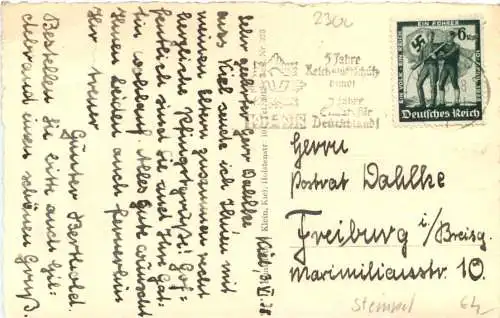 2300
5 Jahre
Reichsluftschutz-
bund!
5 Jahre
für
Deutschland!
EIN FÜHRER
EIN VOLK EIN REICH
6
Deutsches Reich
Herrn
Postrat Dahlke
Freiburg i/Breisg.
Maximilianstr. 10.
Stempel
Kiel, 3. VI. 38
Sehr geehrter Herr Dahlke
aus Kiel sende ich Ihnen mit
meinen Eltern zusammen recht
herzliche Pfingstgrüße! Hof-
fentlich sind Sie und Ihre Gat-
tin wohlauf. Alles Gute wünscht
Ihnen beiden auch fernerhin
Ihr treuer
Günter Berthold.
Bestellen Sie bitte auch Hil-
debrand einen schönen Gruß.
Klein, Kiel, Holstenstr.